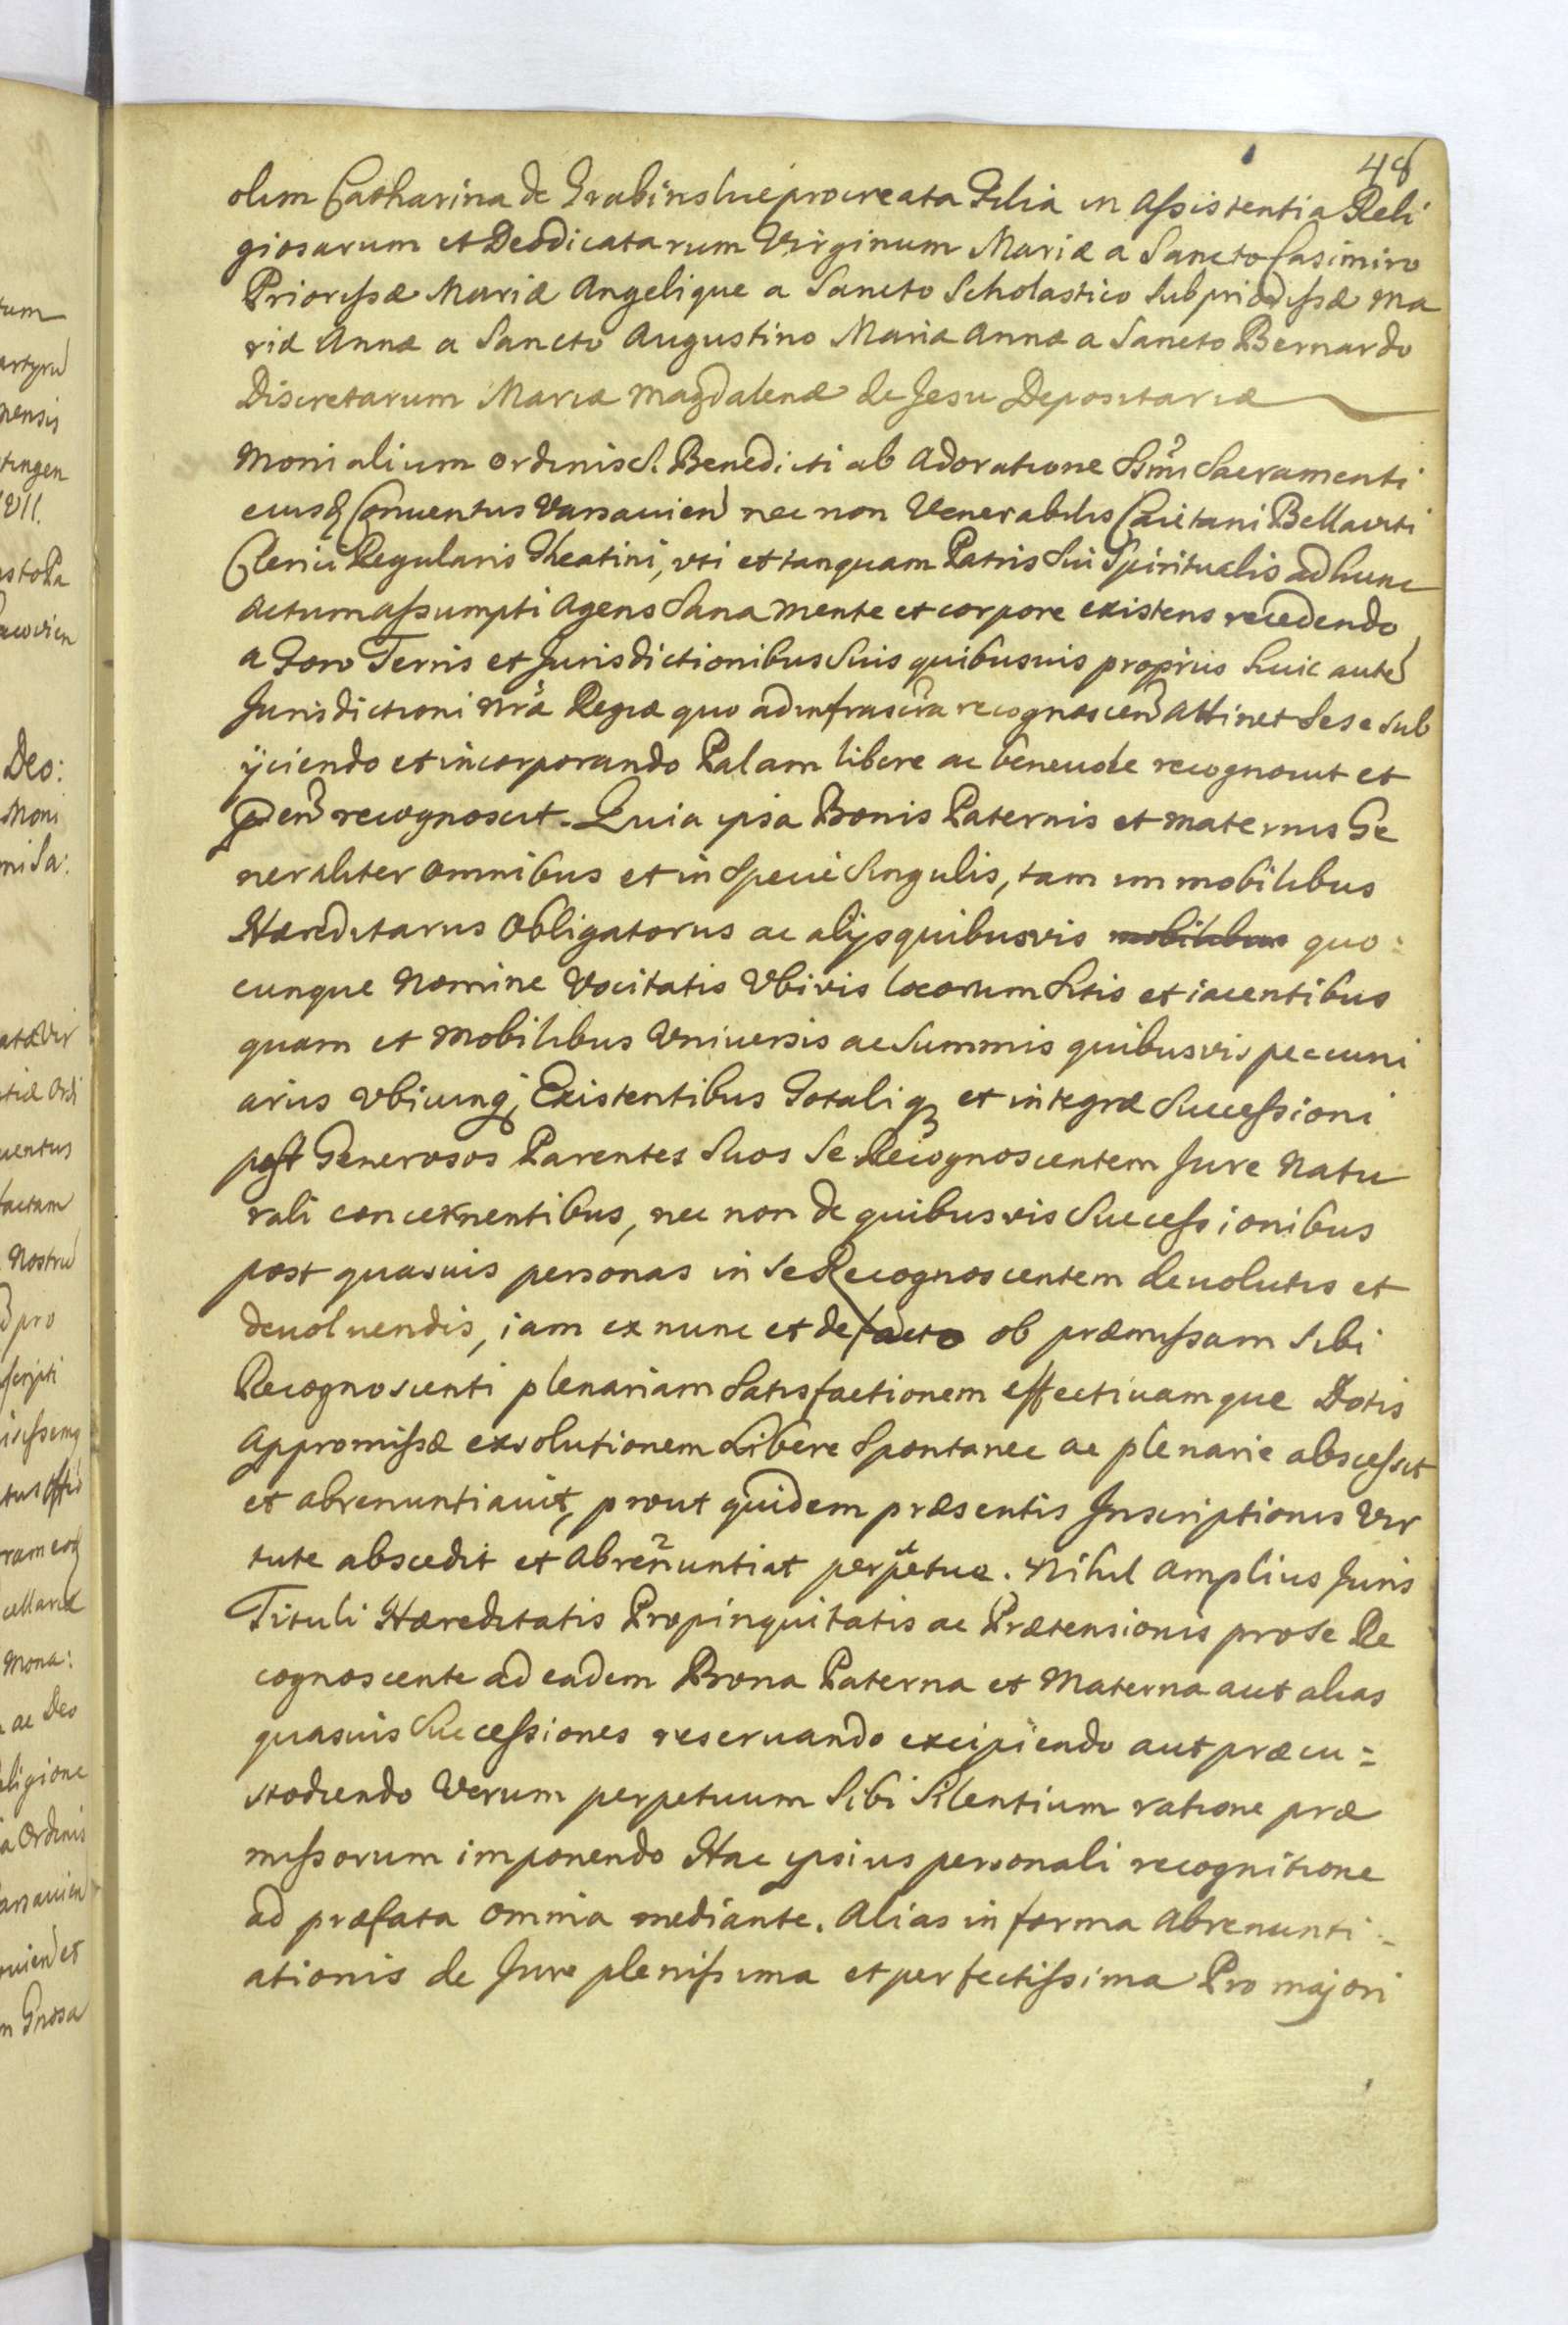 48
olim Catharina de Grabinskie procreata Filia in Assistentia Reli
giosarum et Deodicatarum Virginum Mariæ a Sancto Casimiro
Priorissæ Mariæ Angelique a Sancto Scholastico Subpriorissæ Ma
riæ Annæ a Sancto Augustino Maria Annæ a Sancto Bernardo
Discretarum Mariæ Magdalenæ de Jesu Depositariæ
Monialium ordinis S. Benedicti ab Adoratione Ssmi Sacramenti
eiusq Conventus Varsavien nec non Venerabilis Caietani Bellaviti
Clerici Regularis Theatini, uti et tanquam Patris Sui Spiritualis ad hunc
Actum assumpti Agens Sana Mente et corpore existens recedendo
a Foro Terris et Jurisdictionibus Suis quibusuis proprijs huic aute
Jurisdictioni nra Regiæ quo ad infrascra recognoscen Attinet Sese Sub
ijciendo et incorporando Palam libere ac beneuole recognouit et
pen recognoscit. Quia ipsa Bonis Paternis et maternis Ge
neraliter omnibus et in Specie Singulis, tam immobilibus
Hæreditarijs Obligatorijs ac alijs quibusvis mobilibus quo:
cunque Nomine Vocitatis Ubivis locorum Sitis et iacentibus
quam et Mobilibus Vniuersis ac Summis quibusvis peccuni
arijs ubicunq Existentibus Totaliq et integræ Successioni
post Generosos Parentes Suos Se Recognoscentem Jure Natu
rali concernentibus, nec non de quibusvis Successionibus
post quasuis personas in Se Recognoscentem deuolutis et
deuoluendis, iam ex nunc et de facto ob præmissam Sibi
Recognoscenti plenariam Satisfactionem effectiuamque Dotis
Appromissæ exsolutionem Libere Spontanee ac plenarie abscessit
et abrenuntiauit, prout quidem præsentis Inscriptionis Vir
tute abscedit et Abrenuntiat perpetue. Nihil Amplius Juris
Tituli Hæreditatis Propinquitatis ac Prætensionis pro Se Re
cognoscente ad eadem Bona Paterna et Materna aut alias
quasuis Successiones reseruando excipiendo aut præcu=
stodiendo Verum perpetuum Sibi Silentium ratione præ
missorum imponendo Hac ipsius personali recognitione
ad præfata omnia mediante. Alias in forma Abrenunti=
ationis de Jure plenissima et perfectissima Pro majori